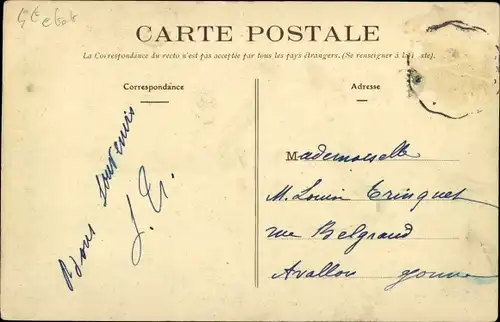 CARTE POSTALE
La Correspondance du recto n'est pas acceptée par tous les pays étrangers. (Se renseigner à la Poste).
Correspondance
Adresse
Bons souvenirs
Mademoiselle
M. Louise Trinquet
rue Belgrand
Avallon Yonne